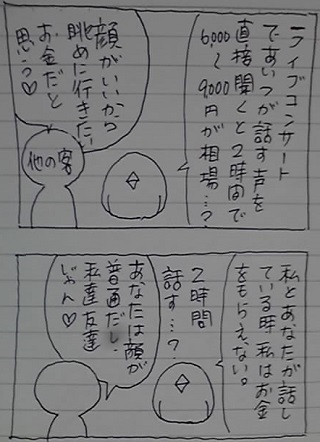 ライブコンサート
であいつが話す声を
直接聞くと2時間で
6,000〜9,000円が相場…?
顔がいいから
眺めに行きたい
お金だと
思う♡
他の客
私とあなたが話し
ている時、私はお金
をもらえない。
2時間
話す…?
あなたは顔が
普通だし
私達友達
じゃん♡